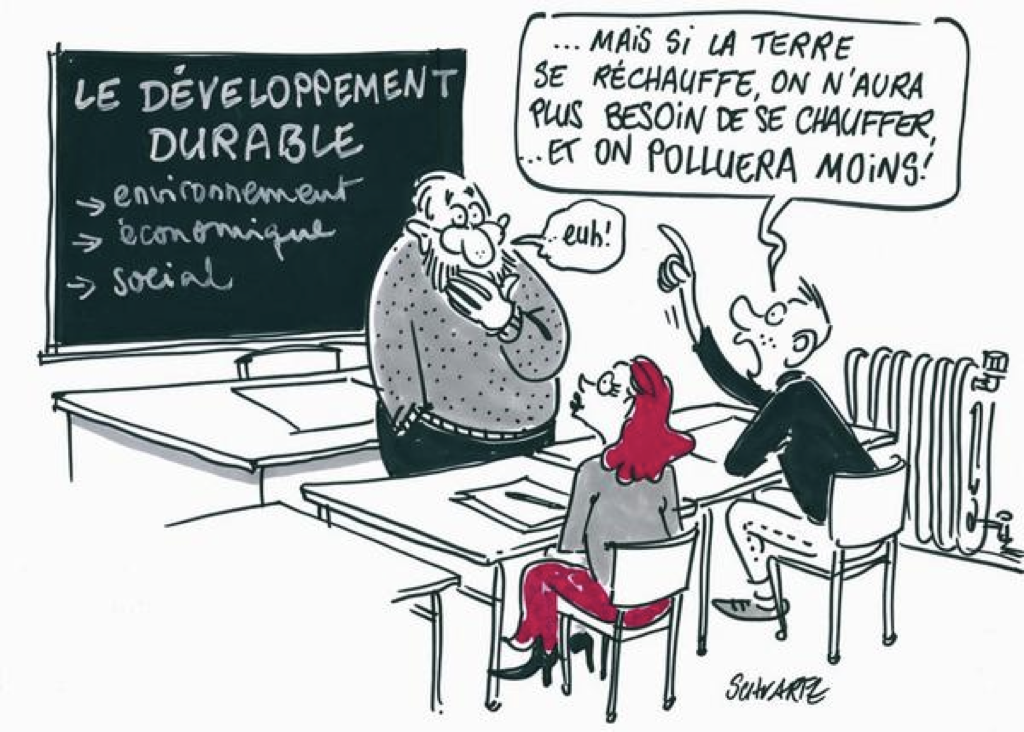 LE DÉVELOPPEMENT
DURABLE
→ environnement
→ économique
→ social
... MAIS SI LA TERRE
SE RÉCHAUFFE, ON N'AURA
PLUS BESOIN DE SE CHAUFFER,
...ET ON POLLUERA MOINS!
euh!
SCHVARTZ